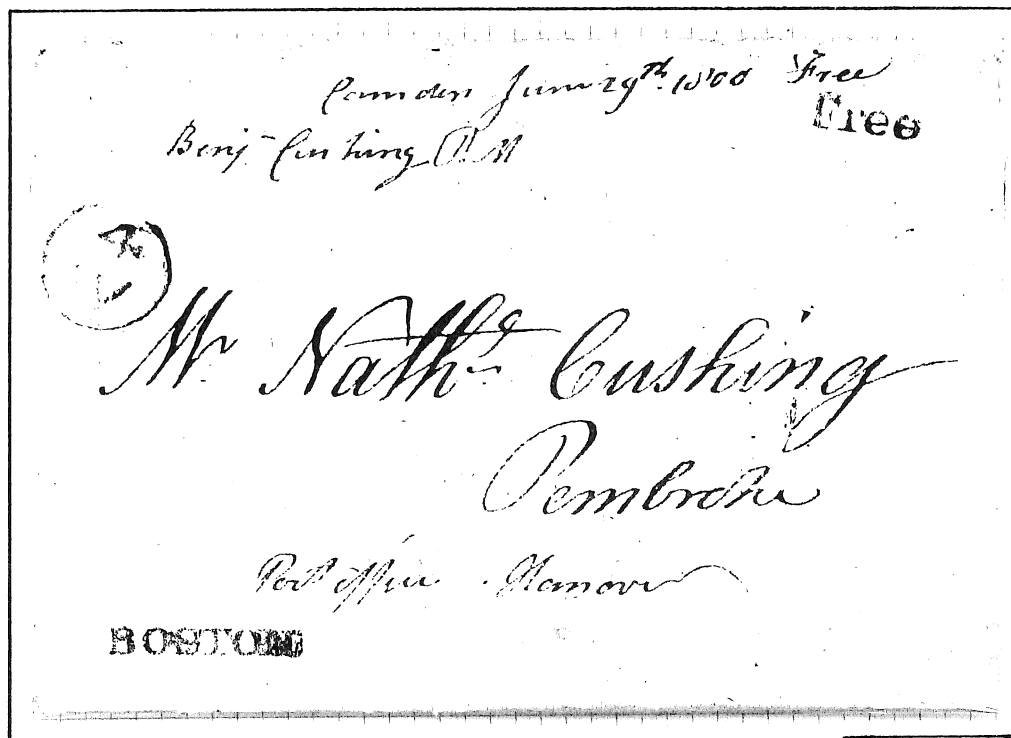 Camden June 29th. 1800 Free
Free
Benj Cushing P M
Mr Nathl Cushing
Pembroke
Post office Hanover
BOSTON